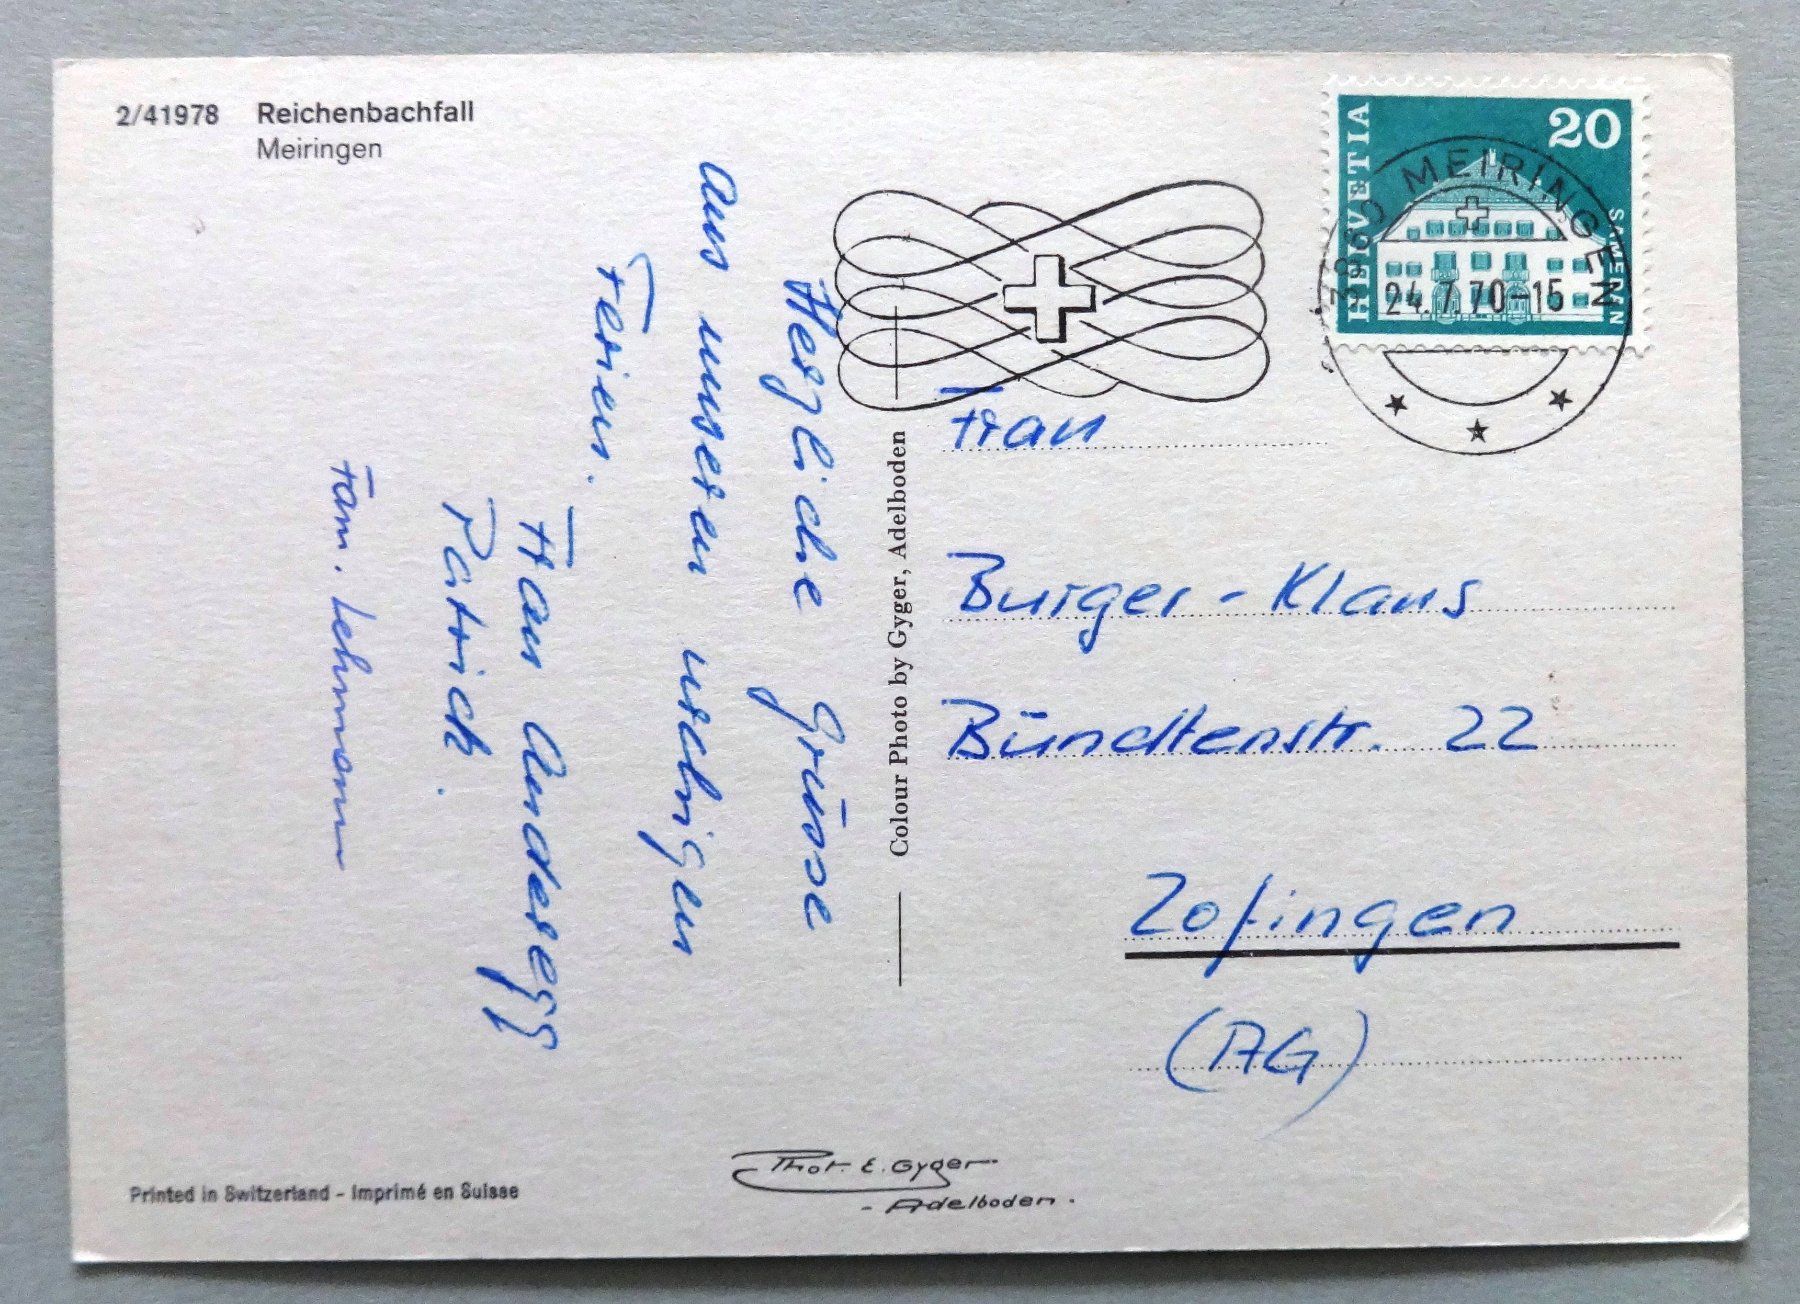 2/41978 Reichenbachfall
Meiringen
Herzliche Grüsse
aus unseren
Ferien.
Frau Anderegg
Patrick.
Fam. Lehmann
Colour Photo by Gyger, Adelboden
HELVETIA
20
3860 MEIRINGEN
24.7.70-15
Frau
Burger-Klaus
Bündtenstr. 22
Zofingen
(AG)
Phot. E. Gyger
- Adelboden.
Printed in Switzerland - Imprimé en Suisse